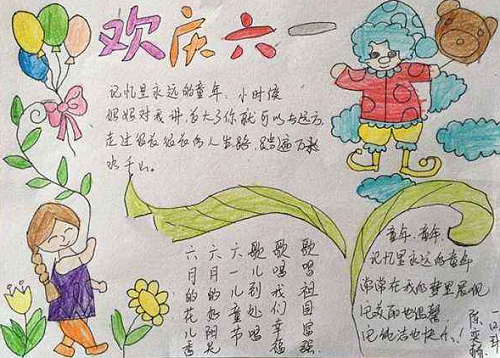 欢庆六一
记忆里永远的童年，小时候
妈妈对我讲，长大了你就可以去远方
走过很长很长的人生路，踏遍万
水千山。
六月的花儿香
六月的好阳光
六一儿童节
歌儿到处唱
歌唱我们幸福
歌唱祖国富强
童年，童年，
记忆里永远的童年
常常在我的梦里展现
美丽也温馨
纯洁也快乐！